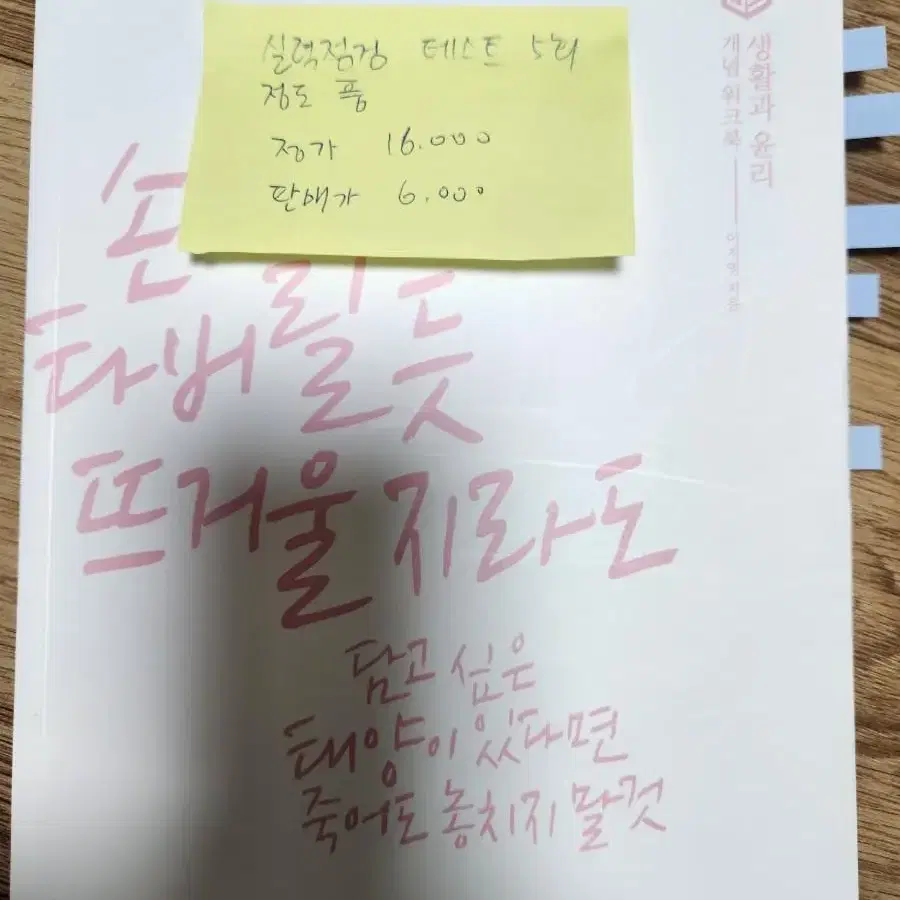 실력점검 테스트 5회
정도 품
정가 16.000
판매가 6.000
생활과 윤리
개념워크북
이지영 지음
손
타버릴 듯
뜨거울지라도
담고 싶은
태양이 있다면
죽어도 놓치지 말것